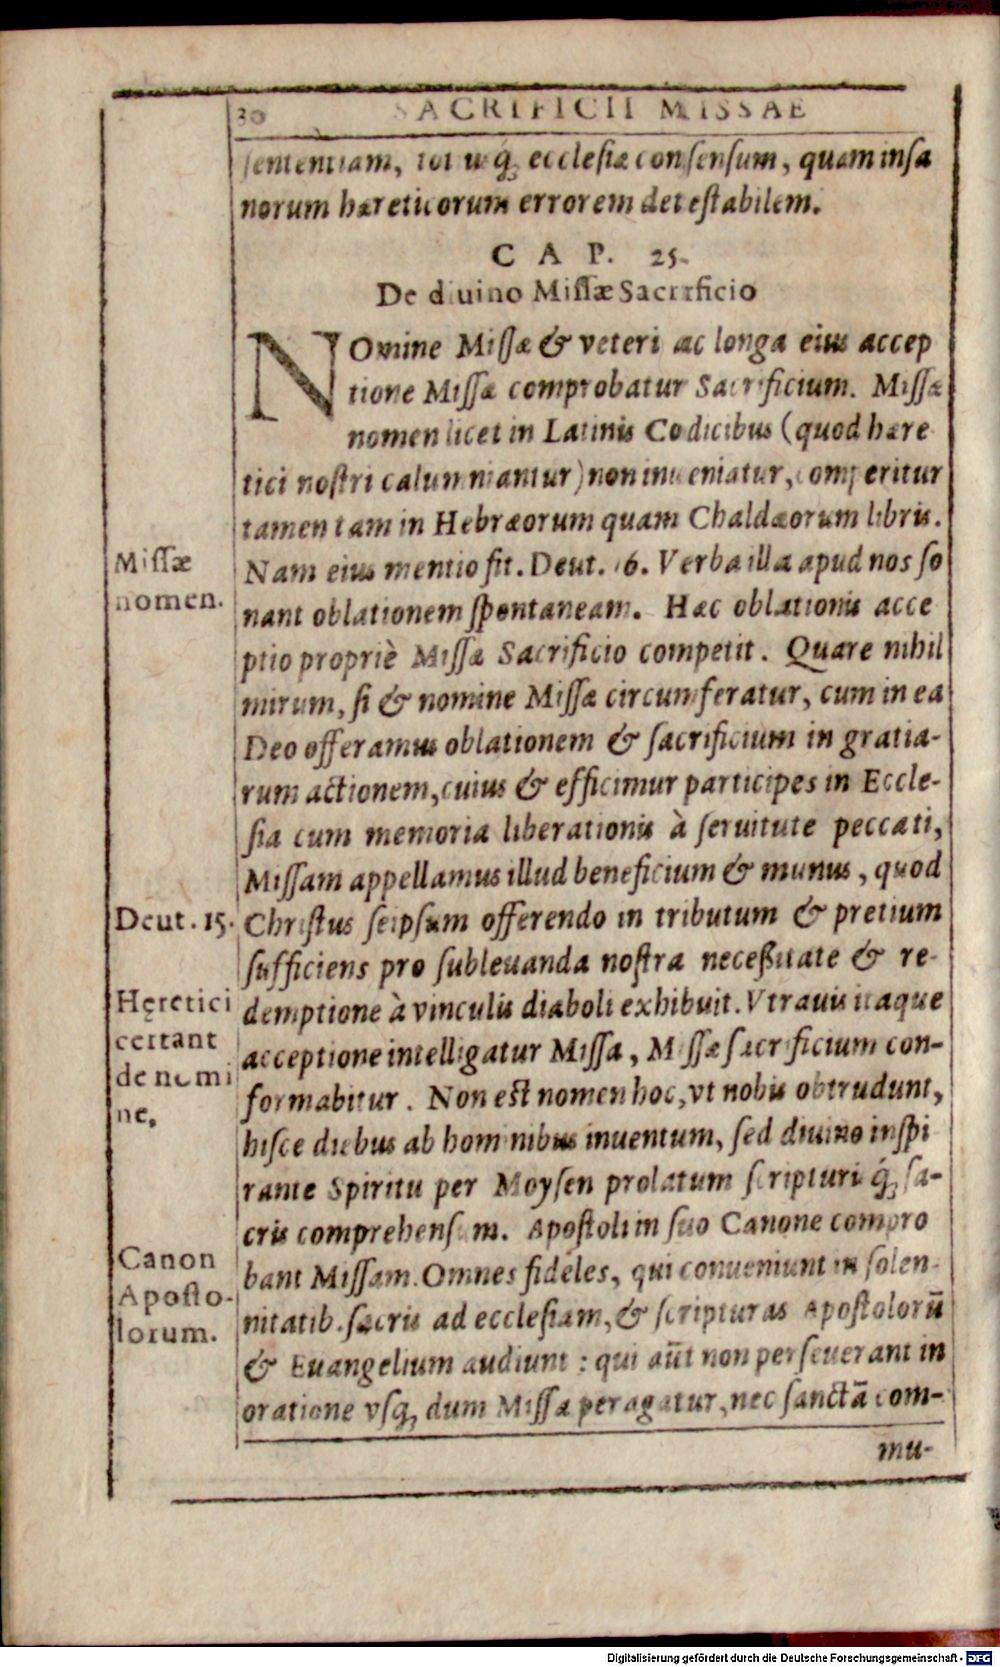 30 SACRIFICII MISSAE
sententiam, tot usq́; ecclesiæ consensum, quam insa
norum hæreticorum errorem detestabilem.
CAP. 25.
De divino Missæ Sacrificio
NOmine Missæ & veteri ac longa eius accep
tione Missæ comprobatur Sacrificium. Missæ
nomen licet in Latinis Codicibus (quod hære
tici nostri calumniantur) non inueniatur, comperitur
tamen tam in Hebræorum quam Chaldæorum libris.
Missæ
nomen.
Nam eius mentio fit. Deut. 16. Verba illa apud nos so
nant oblationem spontaneam. Hæc oblationis acce
ptio propriè Missæ Sacrificio competit. Quare nihil
mirum, si & nomine Missæ circumferatur, cum in ea
Deo offeramus oblationem & sacrificium in gratia-
rum actionem, cuius & efficimur participes in Eccle-
sia cum memoria liberationis à seruitute peccati,
Missam appellamus illud beneficium & munus, quod
Deut. 15.
Christus seipsum offerendo in tributum & pretium
sufficiens pro subleuanda nostra necessitate & re-
Hęretici
certant
de nomi
ne.
demptione à vinculis diaboli exhibuit. Vtrauis itaque
acceptione intelligatur Missa, Missæ sacrificium con-
formabitur. Non est nomen hoc, vt nobis obtrudunt,
hisce diebus ab hominibus inuentum, sed diuino inspi
rante Spiritu per Moysen prolatum scripturisq́; sa-
cris comprehensum. Apostoli in suo Canone compro
Canon
Aposto-
lorum.
bant Missam. Omnes fideles, qui conueniunt in solen-
nitatib. sacris ad ecclesiam, & scripturas Apostolorū
& Euangelium audiunt: qui aūt non perseuerant in
oratione vsq́; dum Missa peragatur, nec sanctā com-
mu-
Digitalisierung gefördert durch die Deutsche Forschungsgemeinschaft - DFG